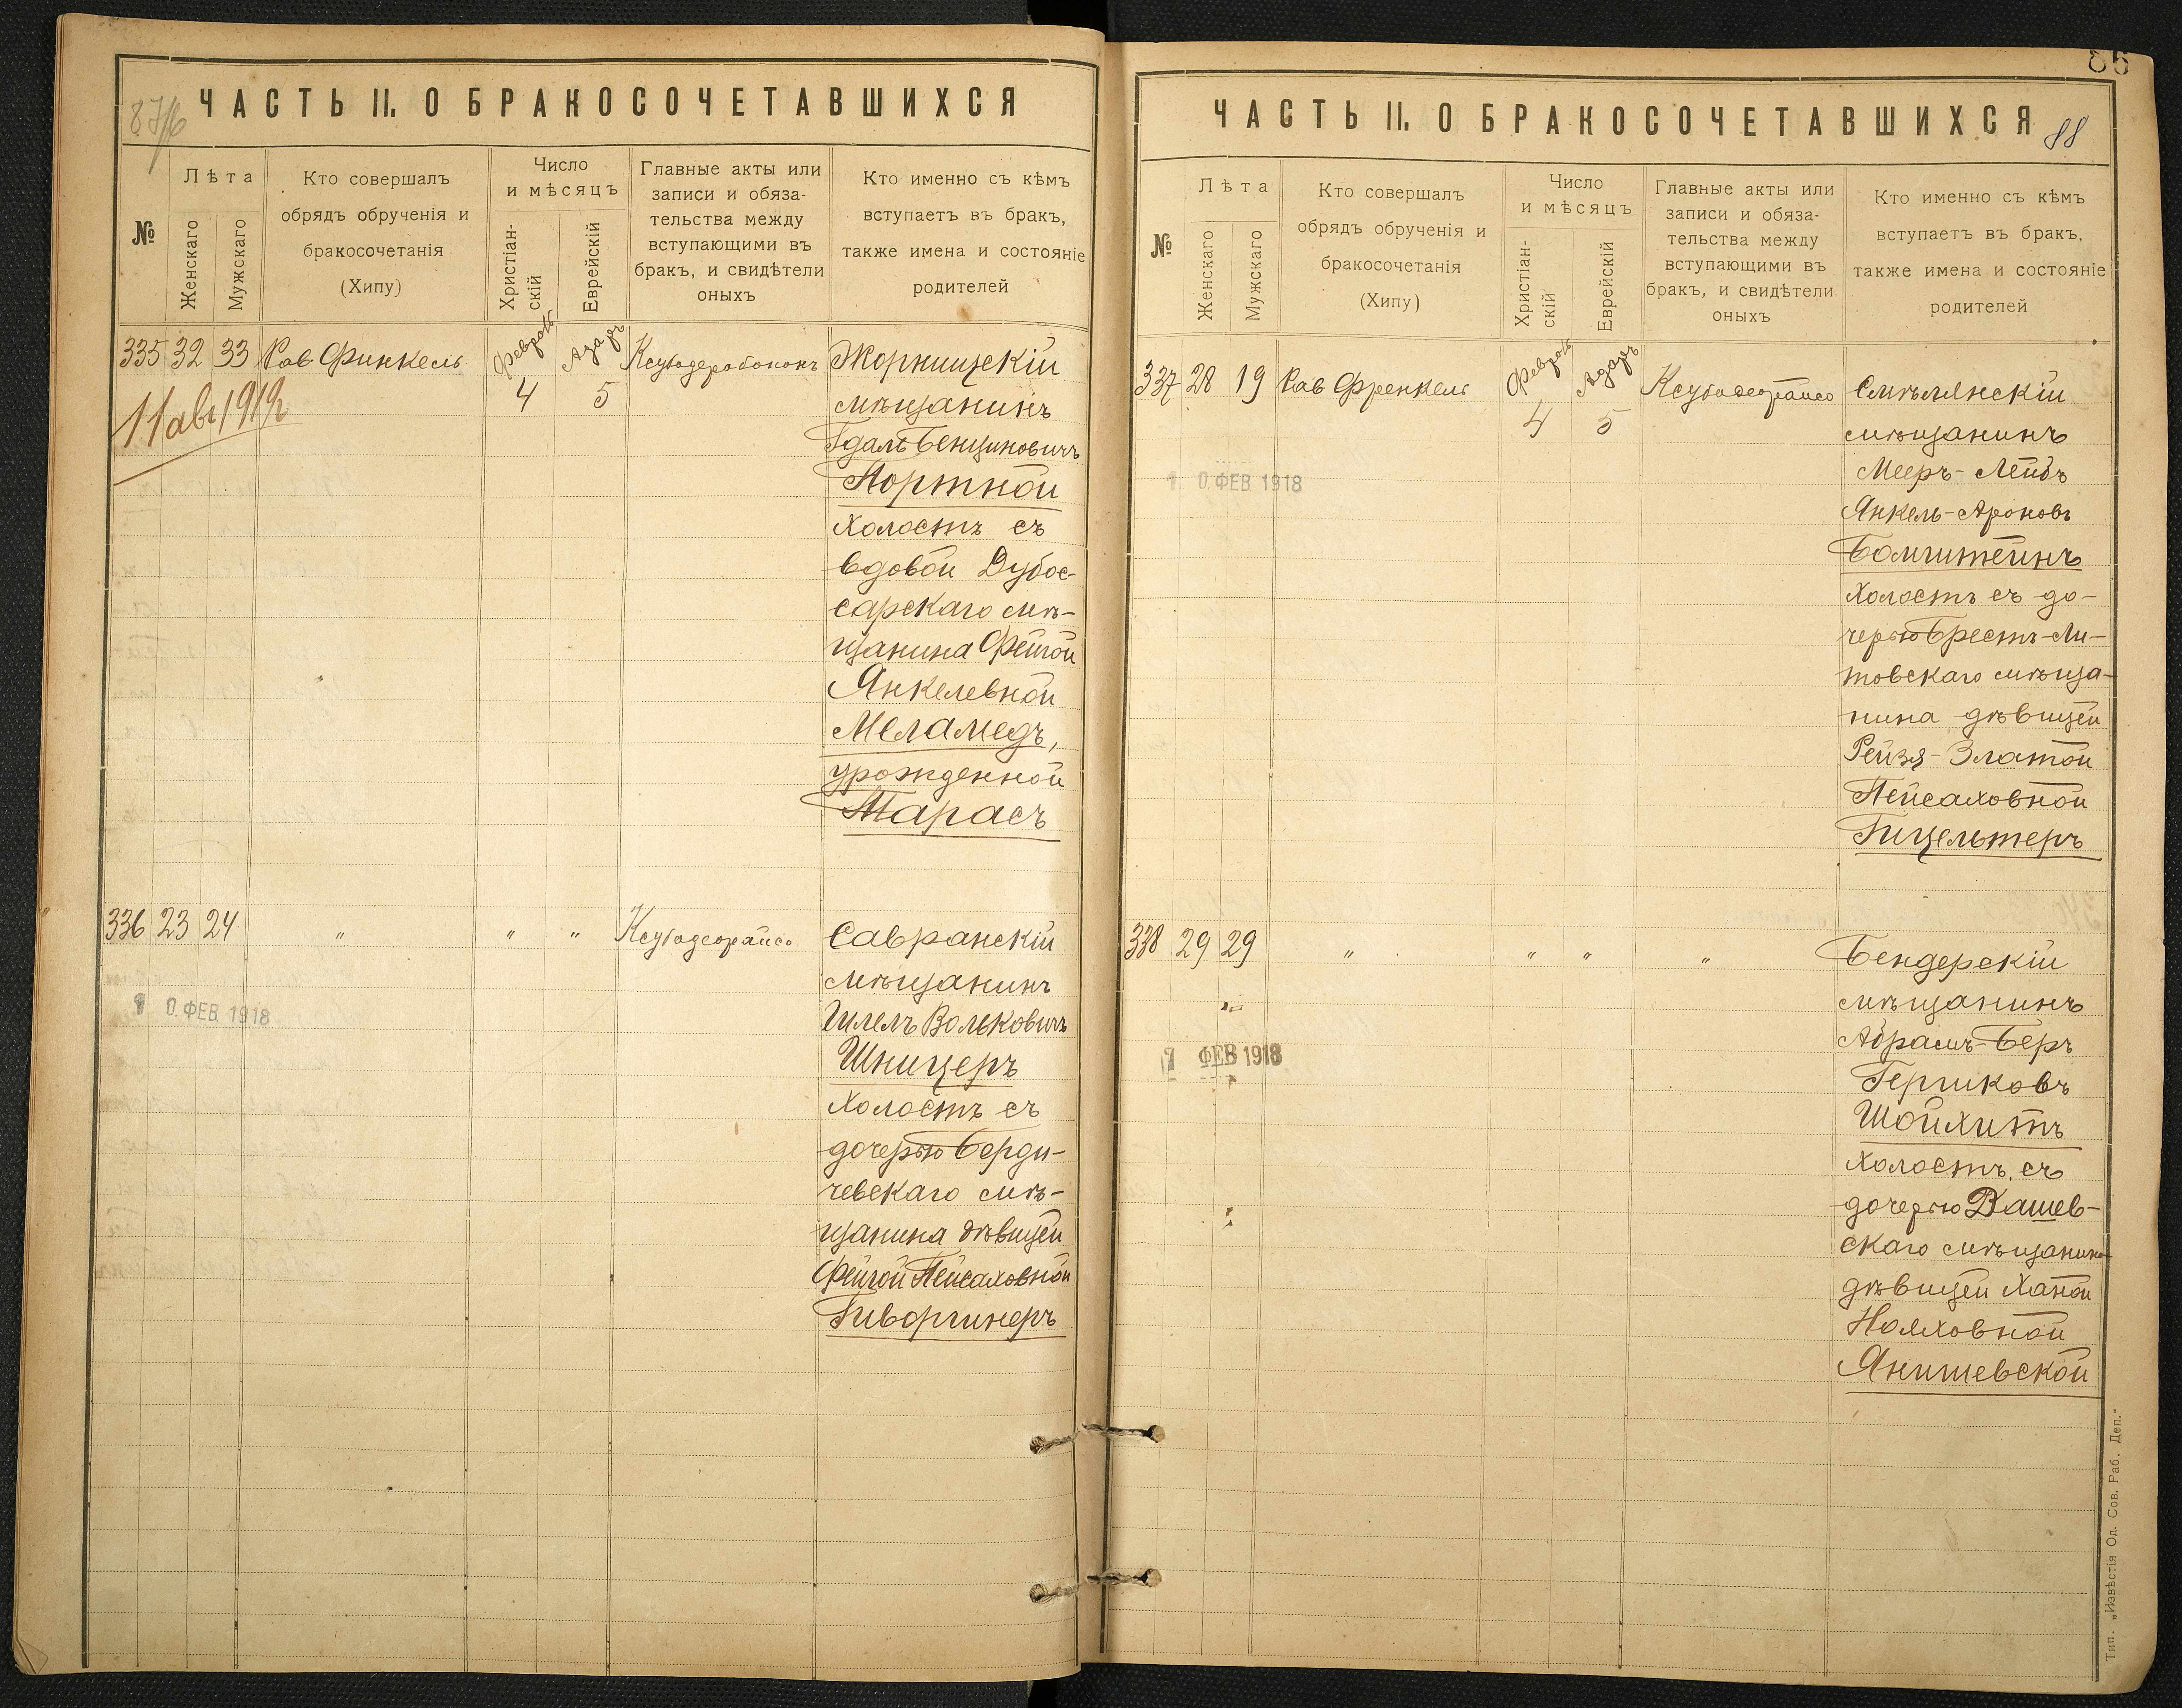 ЧАСТЬ II. О БРАКОСОЧЕТАВШИХСЯ
№
Лѣта
Женскаго
Мужскаго
Кто совершалъ
обрядъ обрученія и
бракосочетанія
(Хипу)
Число
и мѣсяцъ
Христіан-
скій
Еврейскій
Главные акты или
записи и обяза-
тельства между
вступающими въ
бракъ, и свидѣтели
оныхъ
Кто именно съ кѣмъ
вступаетъ въ бракъ,
также имена и состояніе
родителей
335 32 33 Рав Финкель
Феврал 4
Адаръ 5
Жорнищскій
мѣщанинъ
Гдаль Бенціновичъ
Портной
холостъ съ
вдовой Дубос-
сарскаго мѣ-
щанина Фейгой
Янкелевной
Меламедъ,
урожденной
Тарасъ
336 23 24 " " " Ксубадеорайсо
Савранскій
мѣщанинъ
Шлемъ Вольковичъ
Шницеръ
холостъ съ
дочерью Берди-
чевскаго мѣ-
щанина дѣвицей
Фейгой Пейсаховной
10 ФЕВ. 1918
ЧАСТЬ II. О БРАКОСОЧЕТАВШИХСЯ
88
№
Лѣта
Женскаго
Мужскаго
Кто совершалъ
обрядъ обрученія и
бракосочетанія
(Хипу)
Число
и мѣсяцъ
Христіан-
скій
Еврейскій
Главные акты или
записи и обяза-
тельства между
вступающими въ
бракъ, и свидѣтели
оныхъ
Кто именно съ кѣмъ
вступаетъ въ бракъ,
также имена и состояніе
родителей
337 28 19 Рав Френкель
Феврал 4
Адаръ 5
Ксубадеорайсо
Смѣлянскій
мѣщанинъ
Мееръ-Лейбъ
Янкель-Ароновъ
Бомштейнъ
холостъ съ до-
черью Брестъ-Ли-
товскаго мѣща-
нина дѣвицей
Рейзя-Златой
Пейсаховной
Гицельтеръ
10 ФЕВ 1918
338 29 29 " " " "
Бендерскій
мѣщанинъ
Абрамъ-Беръ
Гершковъ
Шойхитъ
холостъ съ
дочерью Дашев-
скаго мѣщанина
дѣвицей Ханой
Нояховной
Янишевской
ФЕВ 1918
Тип. „Извѣстія Од. Сов. Раб. Деп."